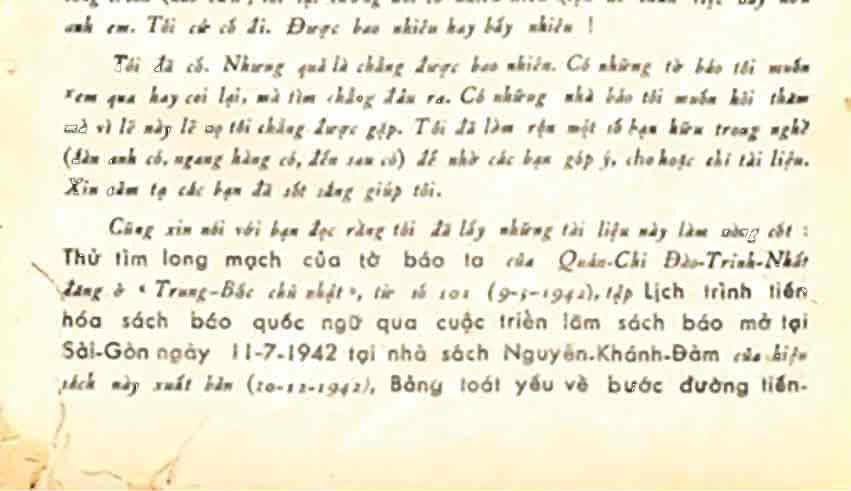 anh em. Tôi cứ cố đi. Được bao nhiêu hay bấy nhiêu !
Tôi đã cố. Nhưng quả là chẳng được bao nhiên. Có những tờ báo tôi muốn
xem qua hay coi lại, mà tìm chẳng đâu ra. Có những nhà báo tôi muốn hỏi thăm
mà vì lẽ này lẽ nọ tôi chẳng được gặp. Tôi đã làm rộn một số bạn hữu trong nghề
(đàn anh có, ngang hàng có, đến sau có) để nhờ các bạn góp ý, cho hoặc chỉ tài liệu.
Xin cảm tạ các bạn đã sốt sắng giúp tôi.
Cũng xin nói với bạn đọc rằng tôi đã lấy những tài liệu này làm nòng cốt :
Thử tìm long mạch của tờ báo ta của Quán-Chi Đào-Trinh-Nhất
đăng ở « Trung-Bắc chủ nhật », từ số 101 (9-3-1942), tập Lịch trình tiến
hóa sách báo quốc ngữ qua cuộc triển lãm sách báo mở tại
Sài-Gòn ngày 11-7-1942 tại nhà sách Nguyễn-Khánh-Đàm của hiệu
sách này xuất bản (20-12-1942), Bảng toát yếu về bước đường tiến-